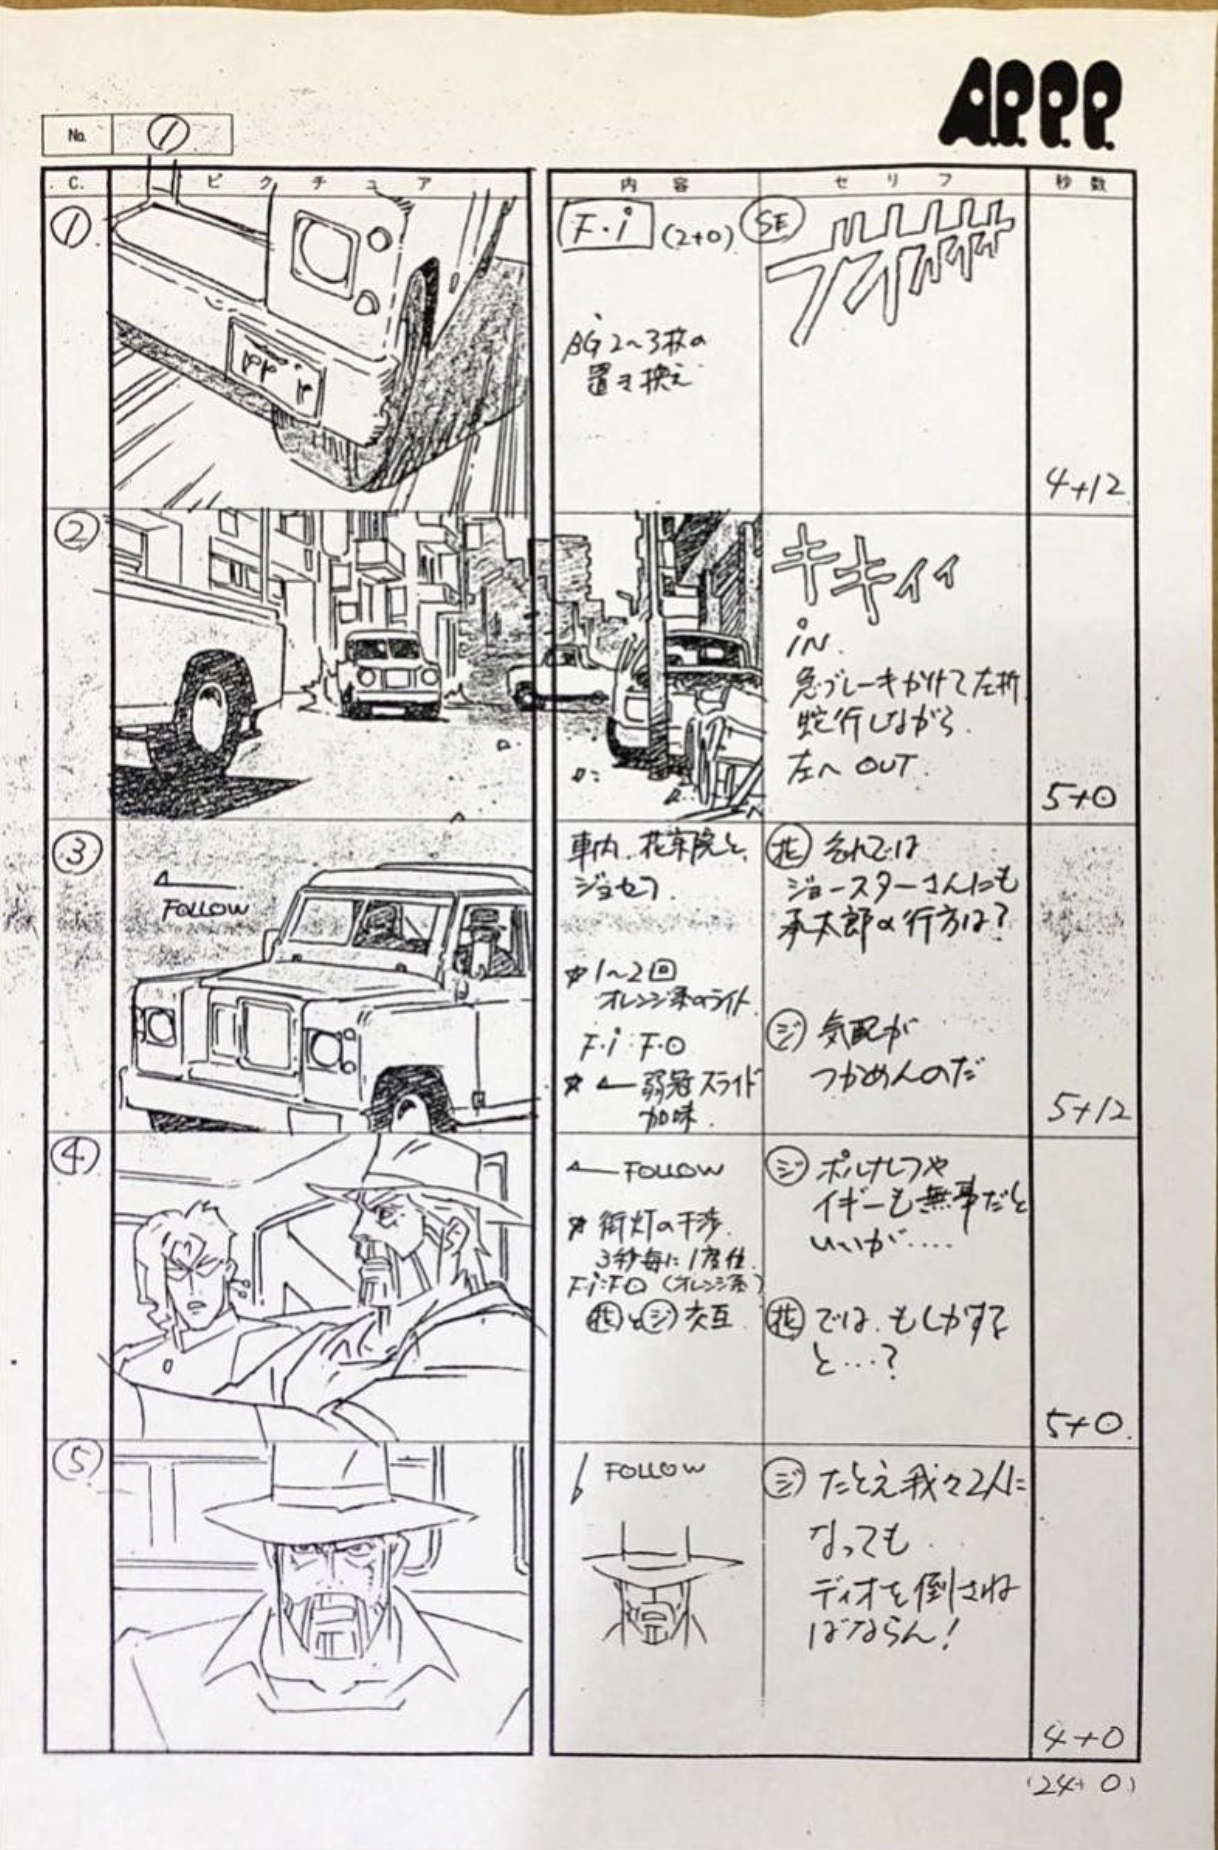 A.P.P.P.
No. ①
C. ピクチュア 内容 セリフ 秒数
①
F・i (2+0)
SE
BG 2〜3枚の
置き換え
4+12
②
キキィィ
iN
急ブレーキかけて左折
蛇行しながら
左へ OUT
5+0
③
FOLLOW
車内 花京院と
ジョセフ
1〜2回
オレンジ系のライト
F・i:F・O
スライド
加味
花 それでは
ジョースターさんにも
承太郎の行方は?
ジ 気配が
つかめんのだ
5+12
④
FOLLOW
街灯の干渉
3秒毎に1度位
F・i:F・O (オレンジ系)
花とジ 交互
ジ ポルナレフや
イギーも無事だと
いいが....
花 では、もしかする
と...?
5+0
⑤
FOLLOW
ジ たとえ我々2人に
なっても
ディオを倒さね
ばならん!
4+0
(24+0)